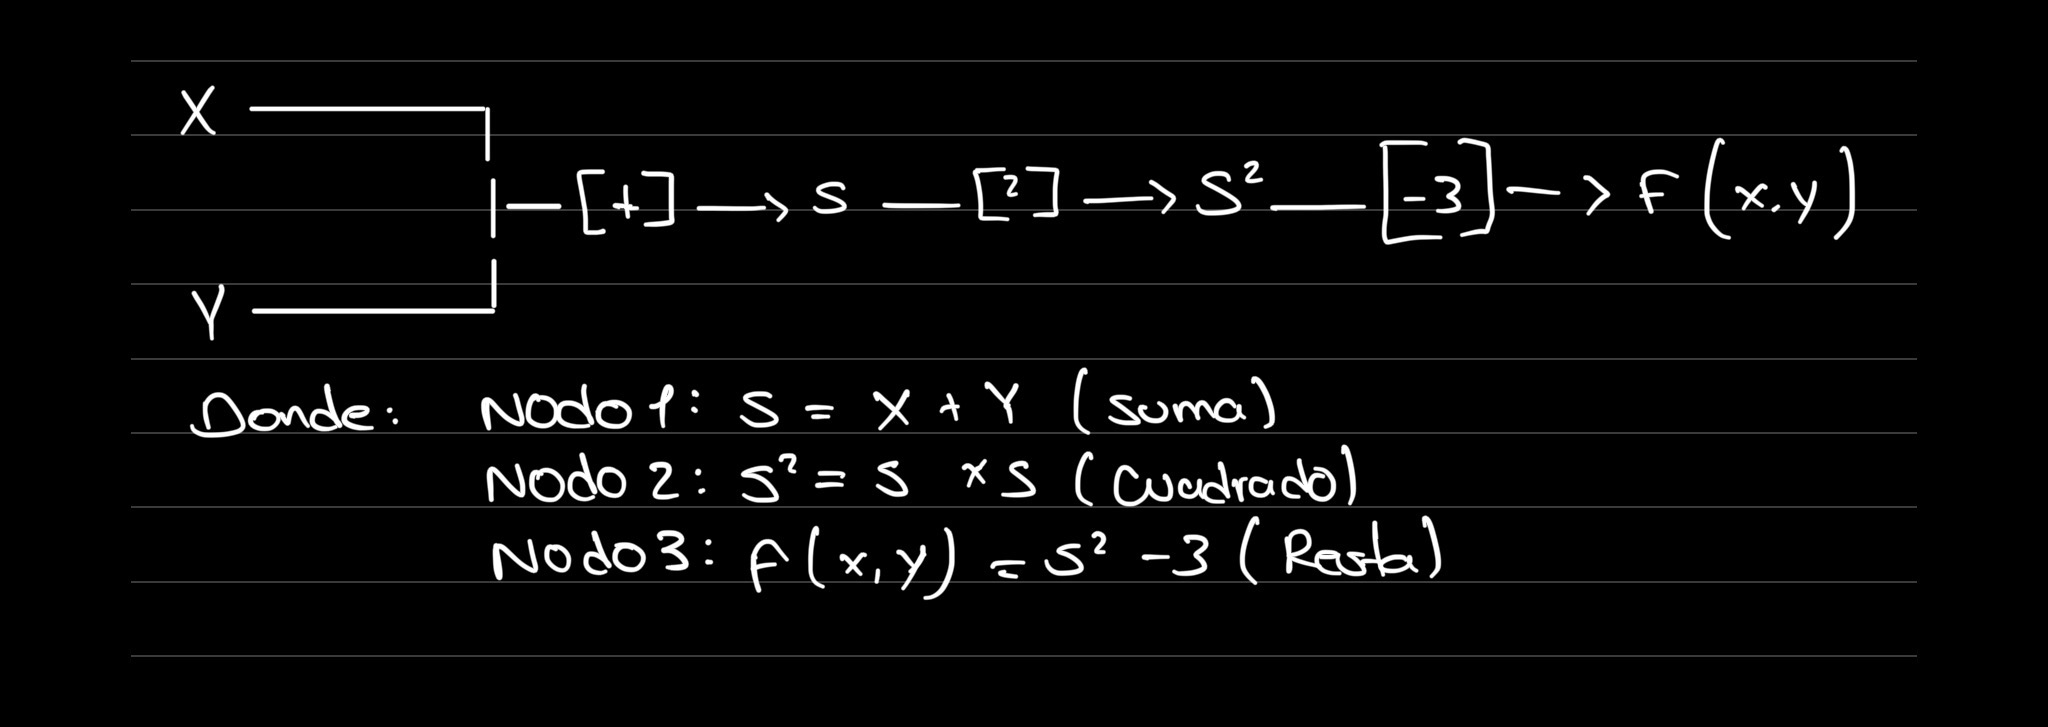 X
[+] → S — [²] → S² — [-3] —> F(x,y)
Y
Donde: Nodo 1: S = X + Y (suma)
Nodo 2: S² = S × S (Cuadrado)
Nodo 3: F(x,y) = S² - 3 (Resta)